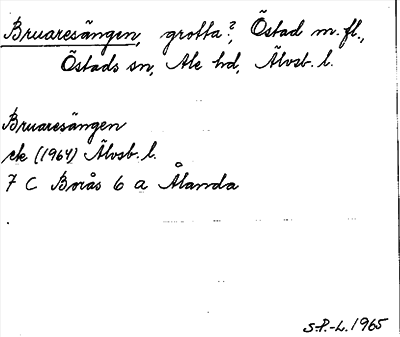 Bruaresängen, grotta?, Östad m.fl.,
Östads sn, Ale hd, Älvsb. l.
Bruaresängen
ek (1964) Älvsb. l.
7 C Borås 6 a Ålanda
S-P.-L. 1965